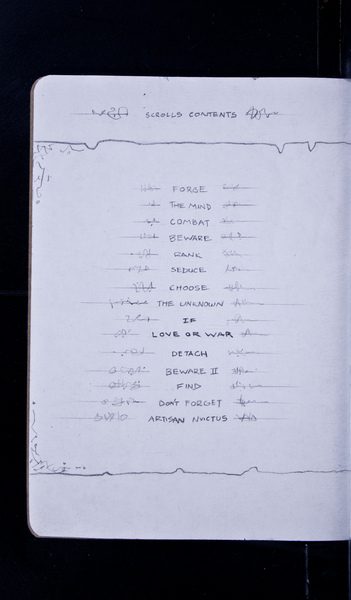 SCROLLS CONTENTS
FORGE
THE MIND
COMBAT
BEWARE
RANK
SEDUCE
CHOOSE
THE UNKNOWN
IF
LOVE OR WAR
DETACH
BEWARE II
FIND
DON'T FORGET
ARTISAN NVICTUS